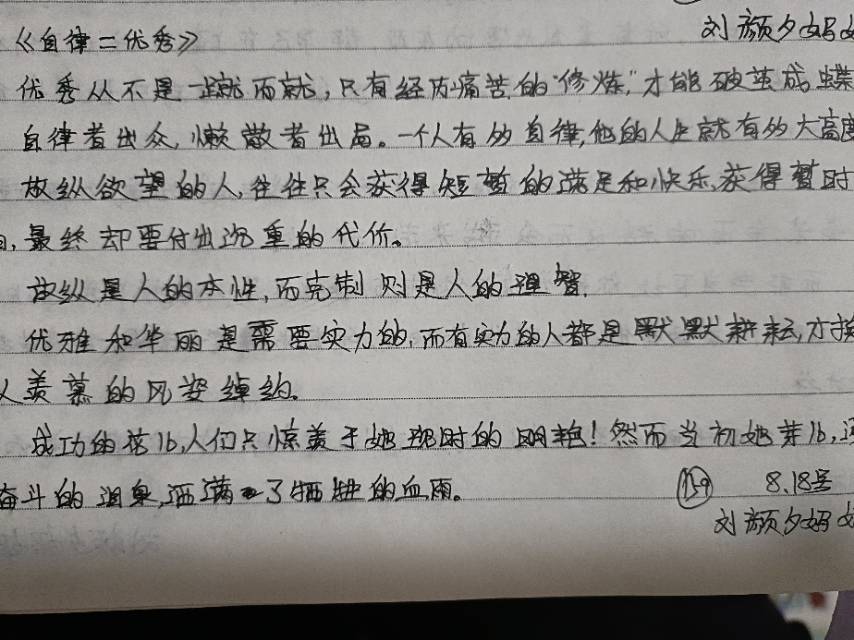 刘颜夕妈妈
《自律=优秀》
优秀从不是一蹴而就,只有经历痛苦的"修炼,"才能破茧成蝶
自律者出众,懒散者出局。一个人有多自律,他的人生就有多大高度
放纵欲望的人,往往只会获得短暂的满足和快乐,获得暂时
,最终却要付出沉重的代价。
放纵是人的本性,而克制则是人的理智.
优雅和华丽是需要实力的,而有实力的人都是默默耕耘,才换
人羡慕的风姿绰约。
成功的花儿,人们只惊羡于她现时的明艳!然而当初她芽儿,
奋斗的泪泉,洒满了牺牲的血雨。
159 8.18号
刘颜夕妈妈